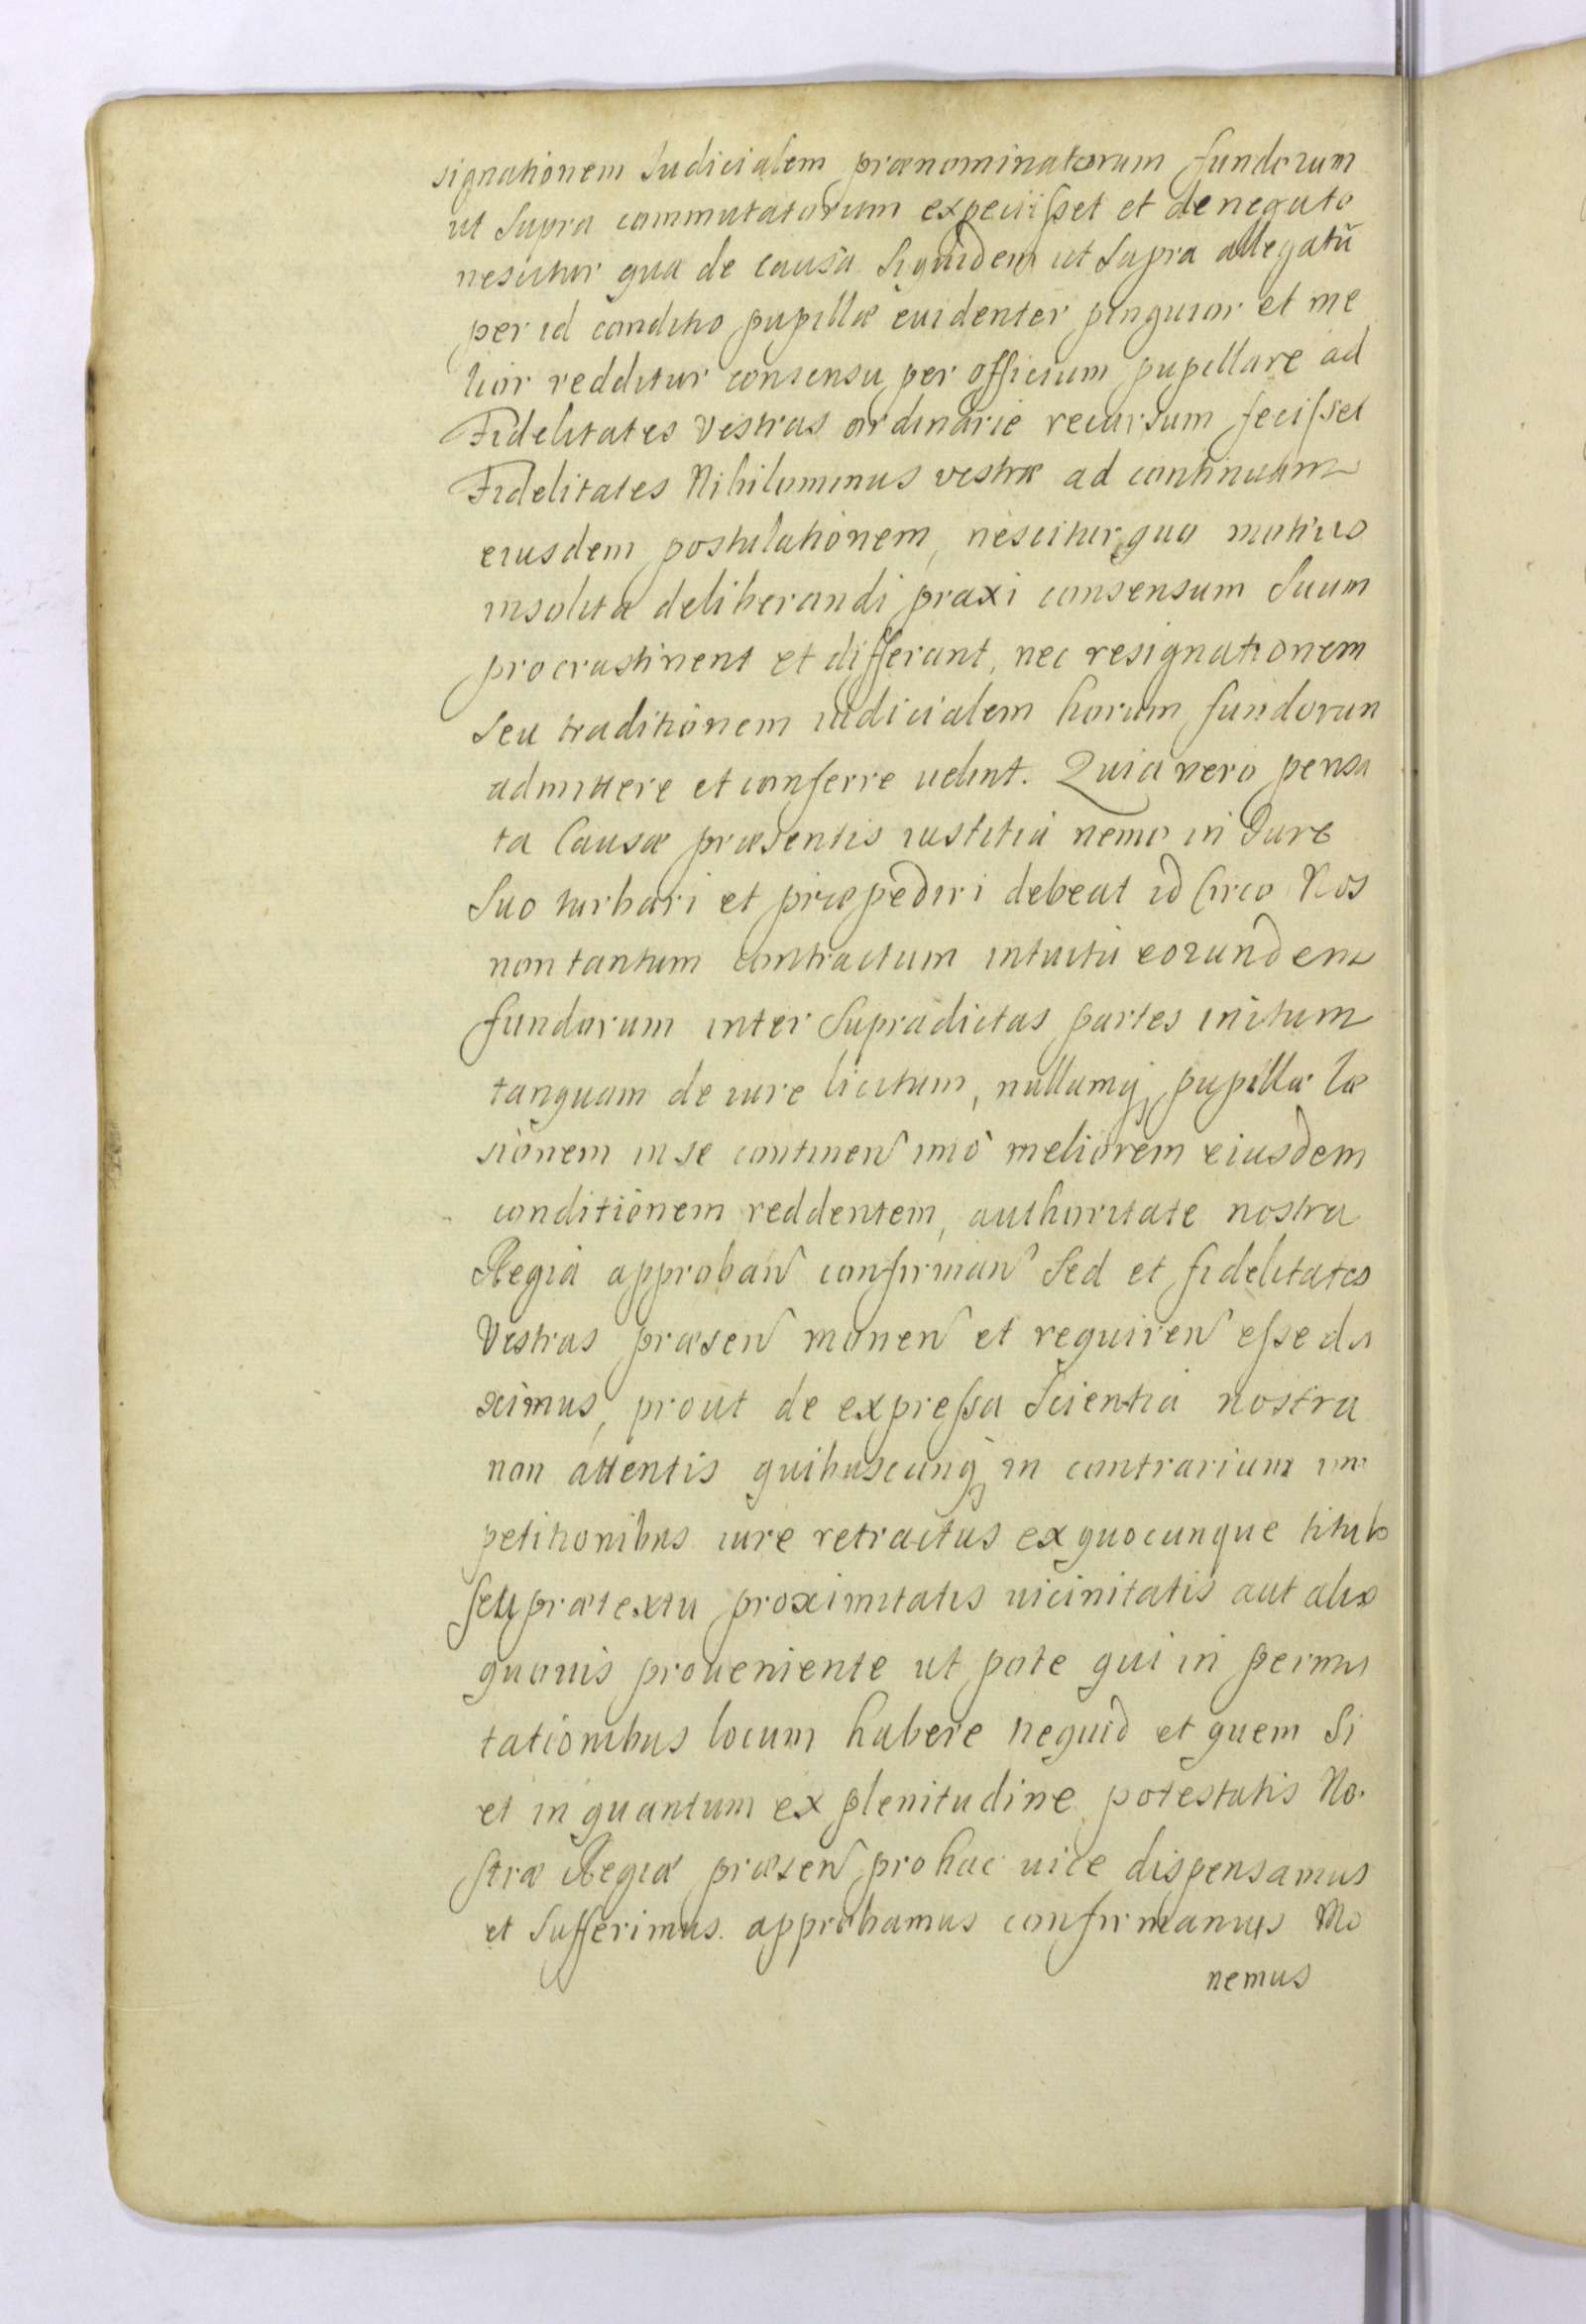 signationem Iudicialem prænominatorum fundorum
ut Supra commutatorum expeciisset et denegato
nescitur qua de causa Siquidem ut Supra allegatū
per id conditio pupillæ euidenter pinguior et me
lior redditur consensu per officium pupillare ad
Fidelitates Vestras ordinarie recursum fecisset
Fidelitates Nihilominus vestræ ad continuam
eiusdem postulationem, nescitur quo motiuo
insolita deliberandi praxi consensum Suum
procrastinent et differant, nec resignationem
Seu traditionem iudicialem horum fundorum
admittere et conferre uelint. Quia vero pensa
ta Causæ præsentis iustitiâ nemo in Iure
Suo turbari et præpediri debeat id Circo Nos
non tantum contractum intuitu eorundem
fundorum inter Supradictas partes initum
tanquam de iure licitum, nullamq; pupillæ læ
sionem in se continen imò meliorem eiusdem
conditionem reddentem, authoritate nostra
Regiâ approban confirman Sed et fidelitates
Vestras præsen monen et requiren esse du
ximus, prout de expressa Scientia nostra
non attentis quibuscunq; in contrarium im
petitionibus iure retractus ex quocunque titulo
seu prætextu proximitatis uicinitatis aut alio
quouis proueniente ut pote qui in permu
tationibus locum habere nequid et quem Si
et in quantum ex plenitudine potestatis No.
stræ Regiæ præsen pro hac uice dispensamus
et Sufferimus. approbamus confirmamus Mo
nemus